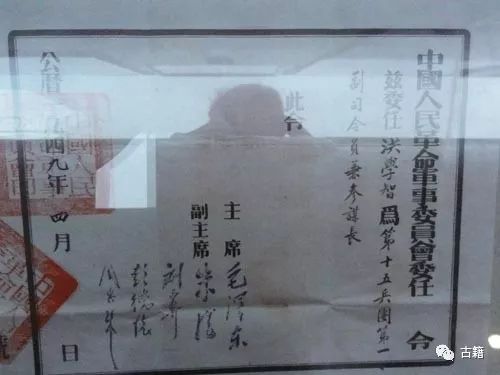 中國人民革命軍事委員會委任 令
茲委任 洪學智 爲 第十五兵團第一
副司令員兼參謀長
此令
主席 毛澤东
副主席 朱德
劉少奇
彭德懷
周恩來
公曆 四九年 四月 日
號
古籍